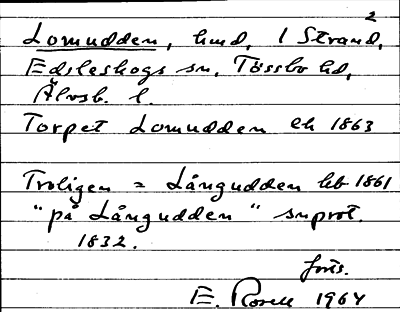 2
Lomudden, hmd, 1 Strand,
Edsleskogs sn, Tössbo hd,
Älvsb. l.
Torpet Lomudden ek 1863
Troligen = Långudden hb 1861
"på Långudden" snprot.
1832.
forts.
E. Rosell 1964